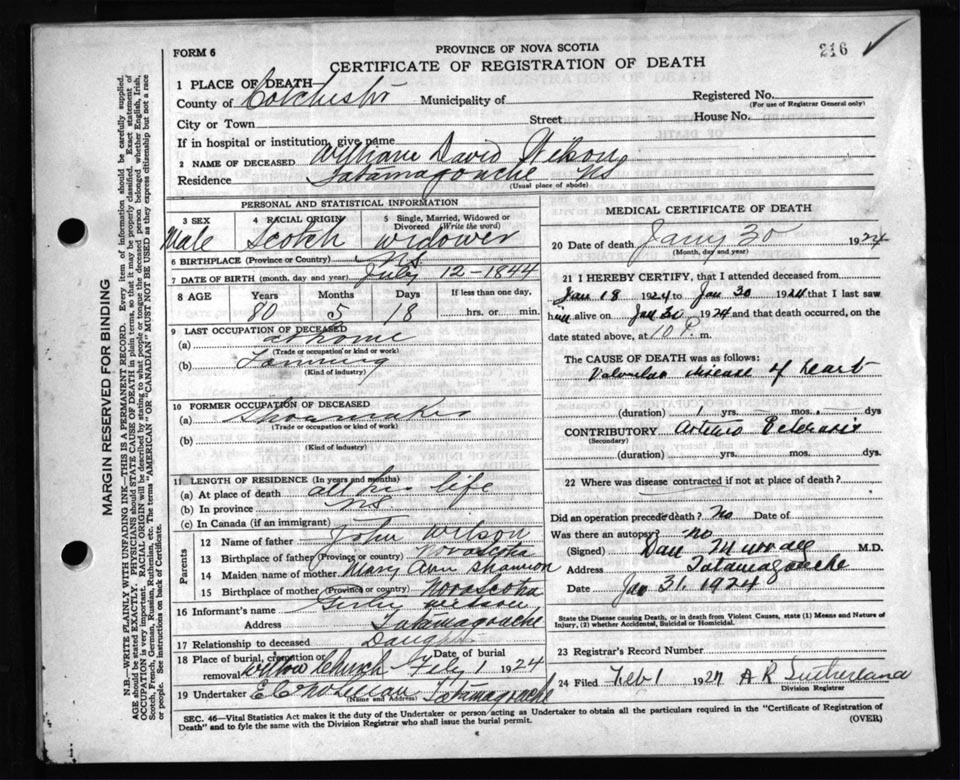 FORM 6
PROVINCE OF NOVA SCOTIA
CERTIFICATE OF REGISTRATION OF DEATH
216
MARGIN RESERVED FOR BINDING
N.B.—WRITE PLAINLY WITH UNFADING INK—THIS IS A PERMANENT RECORD. Every item of information should be carefully supplied.
AGE should be stated EXACTLY. PHYSICIANS should STATE CAUSE OF DEATH in plain terms, so that it may be properly classified. Exact statement of
OCCUPATION is very important. RACIAL ORIGIN will be described by stating to what people or tongue the deceased person belonged whether English, Irish,
Scotch, French, German, Russian, Ruthenian, etc. The terms "AMERICAN" OR "CANADIAN" MUST NOT BE USED as they express citizenship but not a race
or people. See instructions on back of Certificate.
1 PLACE OF DEATH—
County of Colchester Municipality of
City or Town Street
If in hospital or institution, give name
2 NAME OF DECEASED David Wilson
Residence Tatamagouche NS
(Usual place of abode)
Registered No.
(For use of Registrar General only)
House No.
PERSONAL AND STATISTICAL INFORMATION
3 SEX Male
4 RACIAL ORIGIN Scotch
5 Single, Married, Widowed or Divorced (Write the word) Widower
6 BIRTHPLACE (Province or Country) NS
7 DATE OF BIRTH (month, day and year) July 12-1844
8 AGE Years 80 Months 5 Days 18 If less than one day, hrs. or min.
9 LAST OCCUPATION OF DECEASED
(a) at home
(Trade or occupation or kind or work)
(b)
(Kind of industry)
10 FORMER OCCUPATION OF DECEASED
(a) Shoemaker
(Trade or occupation or kind of work)
(b)
(Kind of industry)
11 LENGTH OF RESIDENCE (In years and months)
(a) At place of death all his life
(b) In province NS
(c) In Canada (if an immigrant)
Parents
12 Name of father John Wilson
13 Birthplace of father (Province or country) Nova Scotia
14 Maiden name of mother Mary Ann Shannon
15 Birthplace of mother (Province or country) Nova Scotia
16 Informant's name
Address Tatamagouche
17 Relationship to deceased
18 Place of burial, cremation or removal Church Date of burial Feby 1 1924
19 Undertaker Tatamagouche
(Name and Address)
MEDICAL CERTIFICATE OF DEATH
20 Date of death Jany 30 1924
(Month, day and year)
21 I HEREBY CERTIFY, that I attended deceased from
Jan 18 1924 to Jan 30 1924 that I last saw
him alive on Jan 30 1924 and that death occurred, on the
date stated above, at 10 P. m.
The CAUSE OF DEATH was as follows:
Valvular disease of heart
(duration) 1 yrs. mos. dys
CONTRIBUTORY Arterio
(Secondary)
(duration) yrs. mos. dys.
22 Where was disease contracted if not at place of death?
Did an operation precede death? No Date of
Was there an autopsy? no
(Signed) Dan Murray M.D.
Address Tatamagouche
Date Jan 31. 1924
State the Disease causing Death, or in death from Violent Causes, state (1) Means and Nature of
Injury, (2) whether Accidental, Suicidal or Homicidal.
23 Registrar's Record Number
24 Filed Feb 1 1924 A R Sutherland
Division Registrar
SEC. 46—Vital Statistics Act makes it the duty of the Undertaker or person acting as Undertaker to obtain all the particulars required in the "Certificate of Registration of
Death" and to fyle the same with the Division Registrar who shall issue the burial permit.
(OVER)